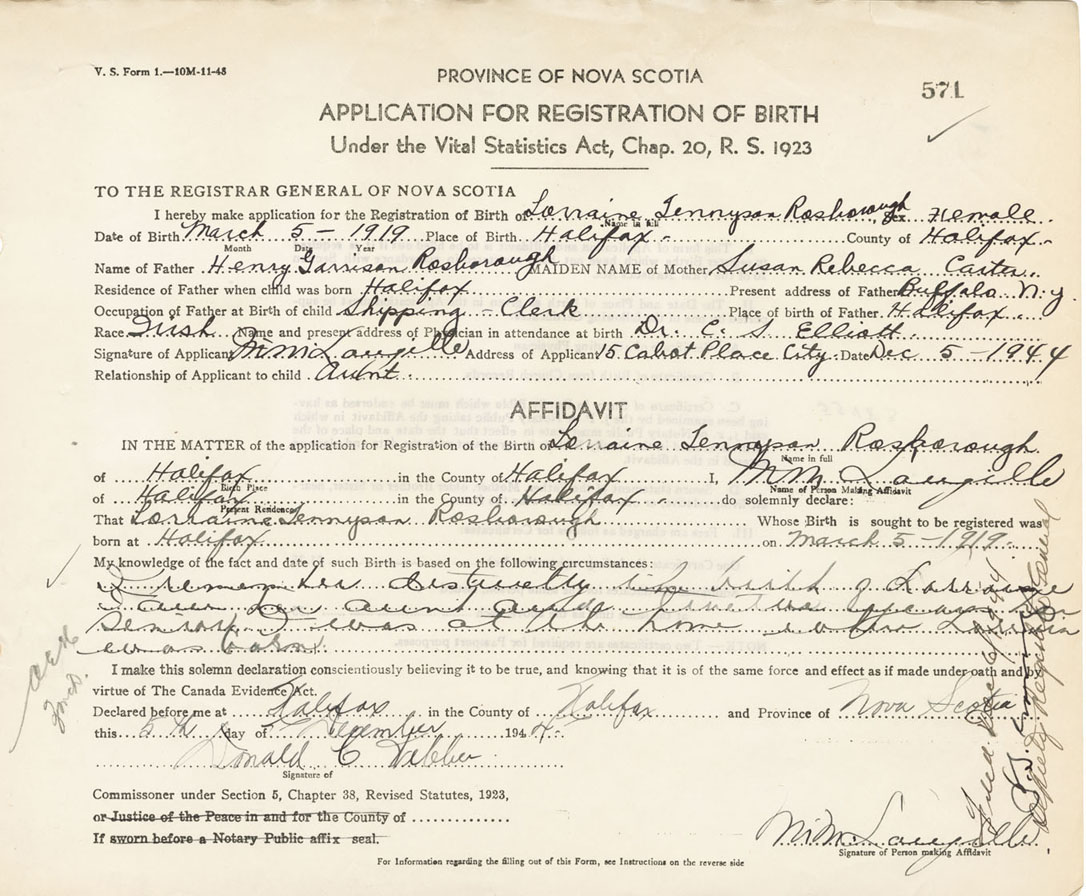 V. S. Form 1.—10M-11-48
PROVINCE OF NOVA SCOTIA
571
APPLICATION FOR REGISTRATION OF BIRTH
Under the Vital Statistics Act, Chap. 20, R. S. 1923
TO THE REGISTRAR GENERAL OF NOVA SCOTIA
I hereby make application for the Registration of Birth of Lorraine Tennyson Rosborough Sex Female
Name in full
Date of Birth March 5 - 1919 Place of Birth Halifax County of Halifax
Month Date Year
Name of Father Henry Garrison Rosborough MAIDEN NAME of Mother Susan Rebecca Carter
Residence of Father when child was born Halifax Present address of Father Buffalo N.y.
Occupation of Father at Birth of child Shipping - Clerk Place of birth of Father Halifax
Race Irish Name and present address of Physician in attendance at birth Dr. C. S. Elliott
Signature of Applicant M M Langille Address of Applicant 15 Cabot Place City Date Dec 5 - 1944
Relationship of Applicant to child Aunt
AFFIDAVIT
IN THE MATTER of the application for Registration of the Birth of Lorraine Tennyson Rosborough
Name in full
of Halifax in the County of Halifax I, M M Langille
Birth Place Name of Person Making Affidavit
of Halifax in the County of Halifax do solemnly declare:
Present Residence
That Lorraine Tennyson Rosborough Whose Birth is sought to be registered was
born at Halifax on March 5 - 1919
My knowledge of the fact and date of such Birth is based on the following circumstances:
I remember distinctly the birth of Lorraine
I am her aunt and twelve years her
senior I was at the home when Lorraine
was born.
I make this solemn declaration conscientiously believing it to be true, and knowing that it is of the same force and effect as if made under oath and by
virtue of The Canada Evidence Act.
Declared before me at Halifax in the County of Halifax and Province of Nova Scotia
this 5th day of December 194
Donald C Webber
Signature of
Commissioner under Section 5, Chapter 38, Revised Statutes, 1923,
or Justice of the Peace in and for the County of
If sworn before a Notary Public affix seal.
M. M. Langille
Signature of Person making Affidavit
For Information regarding the filling out of this Form, see Instructions on the reverse side
Filed Dec 6, 1944
Deputy Registrar General